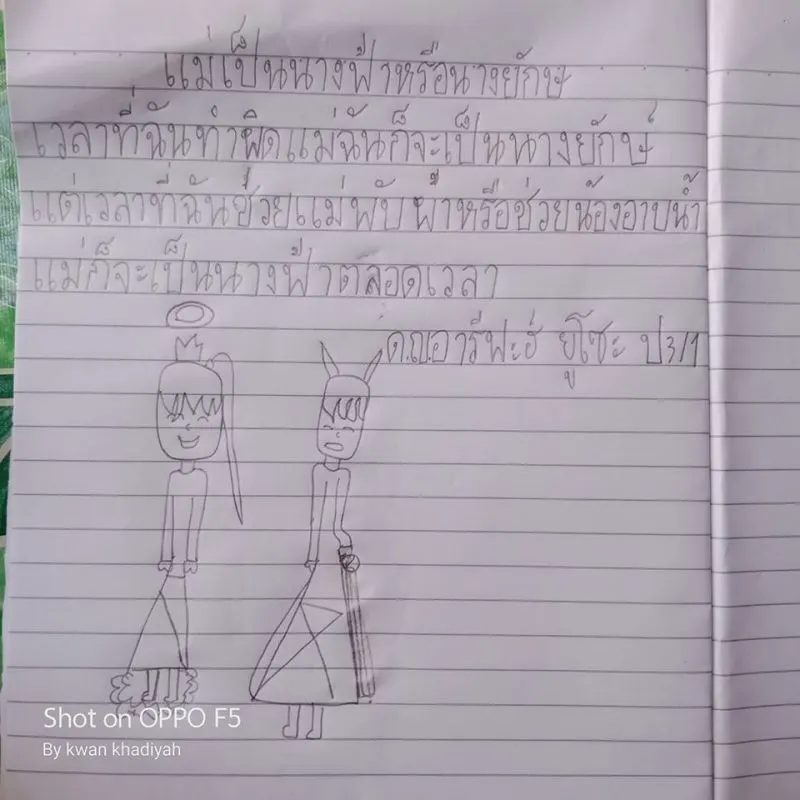 แม่เป็นนางฟ้าหรือนางยักษ
เวลาที่ฉันทำผิดแม่ฉันก็จะเป็นนางยักษ์
แต่เวลาที่ฉันช่วยแม่พับผ้าหรือช่วยน้องอาบน้ำ
แม่ก็จะเป็นนางฟ้าตลอดเวลา
ด.ญ.อารีฟะฮ์ ยูโซะ ป3/1
Shot on OPPO F5
By kwan khadiyah